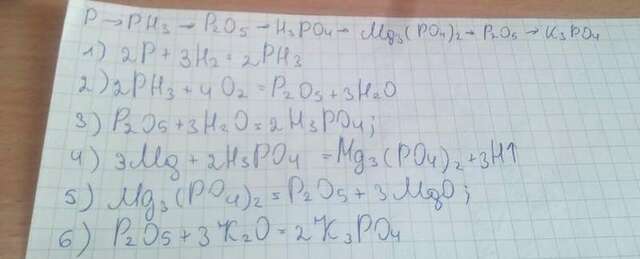 P → PH3 → P2O5 → H3PO4 → Mg3(PO4)2 → P2O5 → K3PO4
1) 2P + 3H2 = 2PH3
2) 2PH3 + 4O2 = P2O5 + 3H2O
3) P2O5 + 3H2O = 2H3PO4;
4) 3Mg + 2H3PO4 = Mg3(PO4)2 + 3H↑
5) Mg3(PO4)2 = P2O5 + 3MgO;
6) P2O5 + 3K2O = 2K3PO4